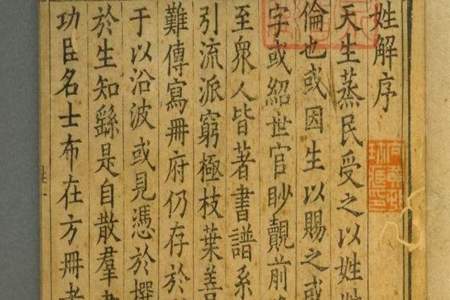 姓解序
天生蒸民受之以姓姓
倫也或因生以賜之或
字或紹世官眇覿前
至衆人皆著書譜系
引流派窮極枝葉善
難傳寫冊府仍存於
于以沿波或見憑於撰
於生知繇是自散羣
功臣名士布在方冊者